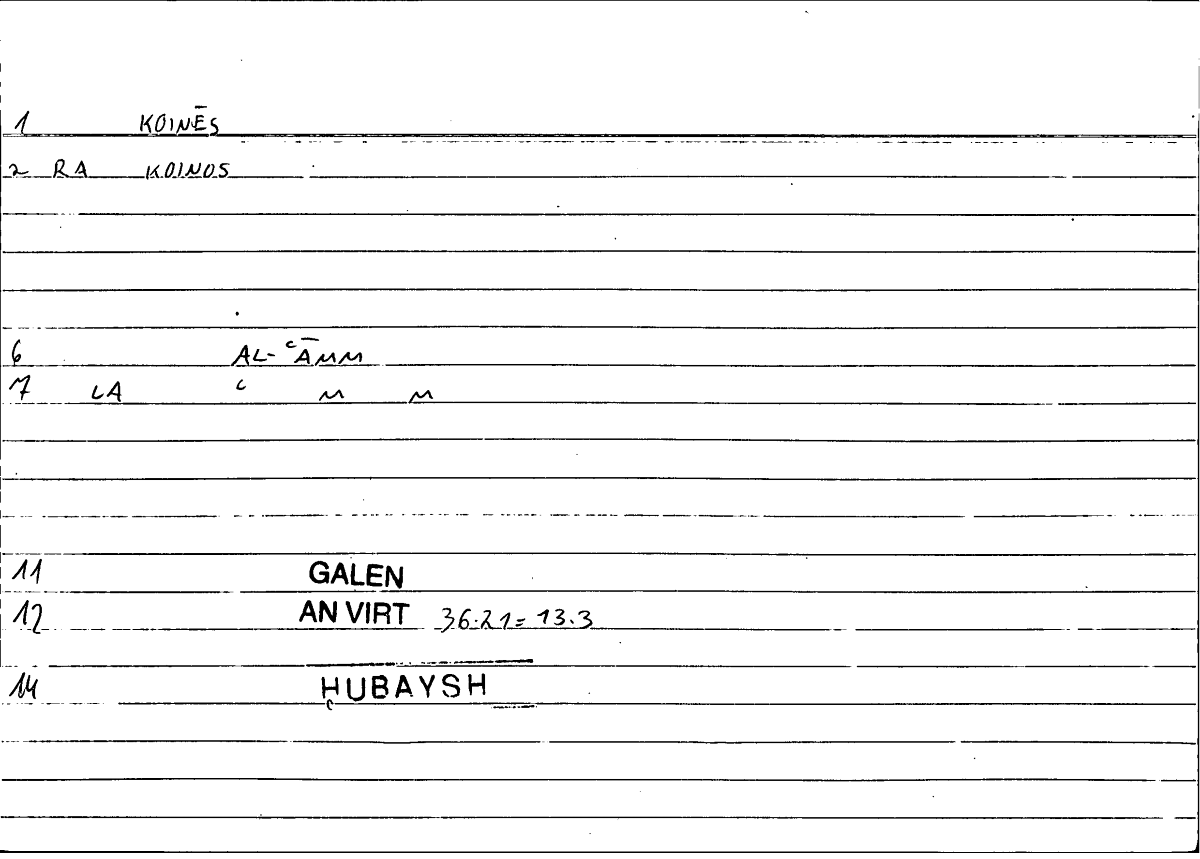 1 KOINĒS
2 RA KOINOS
6 AL-ʿĀMM
7 LA ʿ M M
11 GALEN
12 AN VIRT 36.21 = 13.3
14 ḤUBAYSH